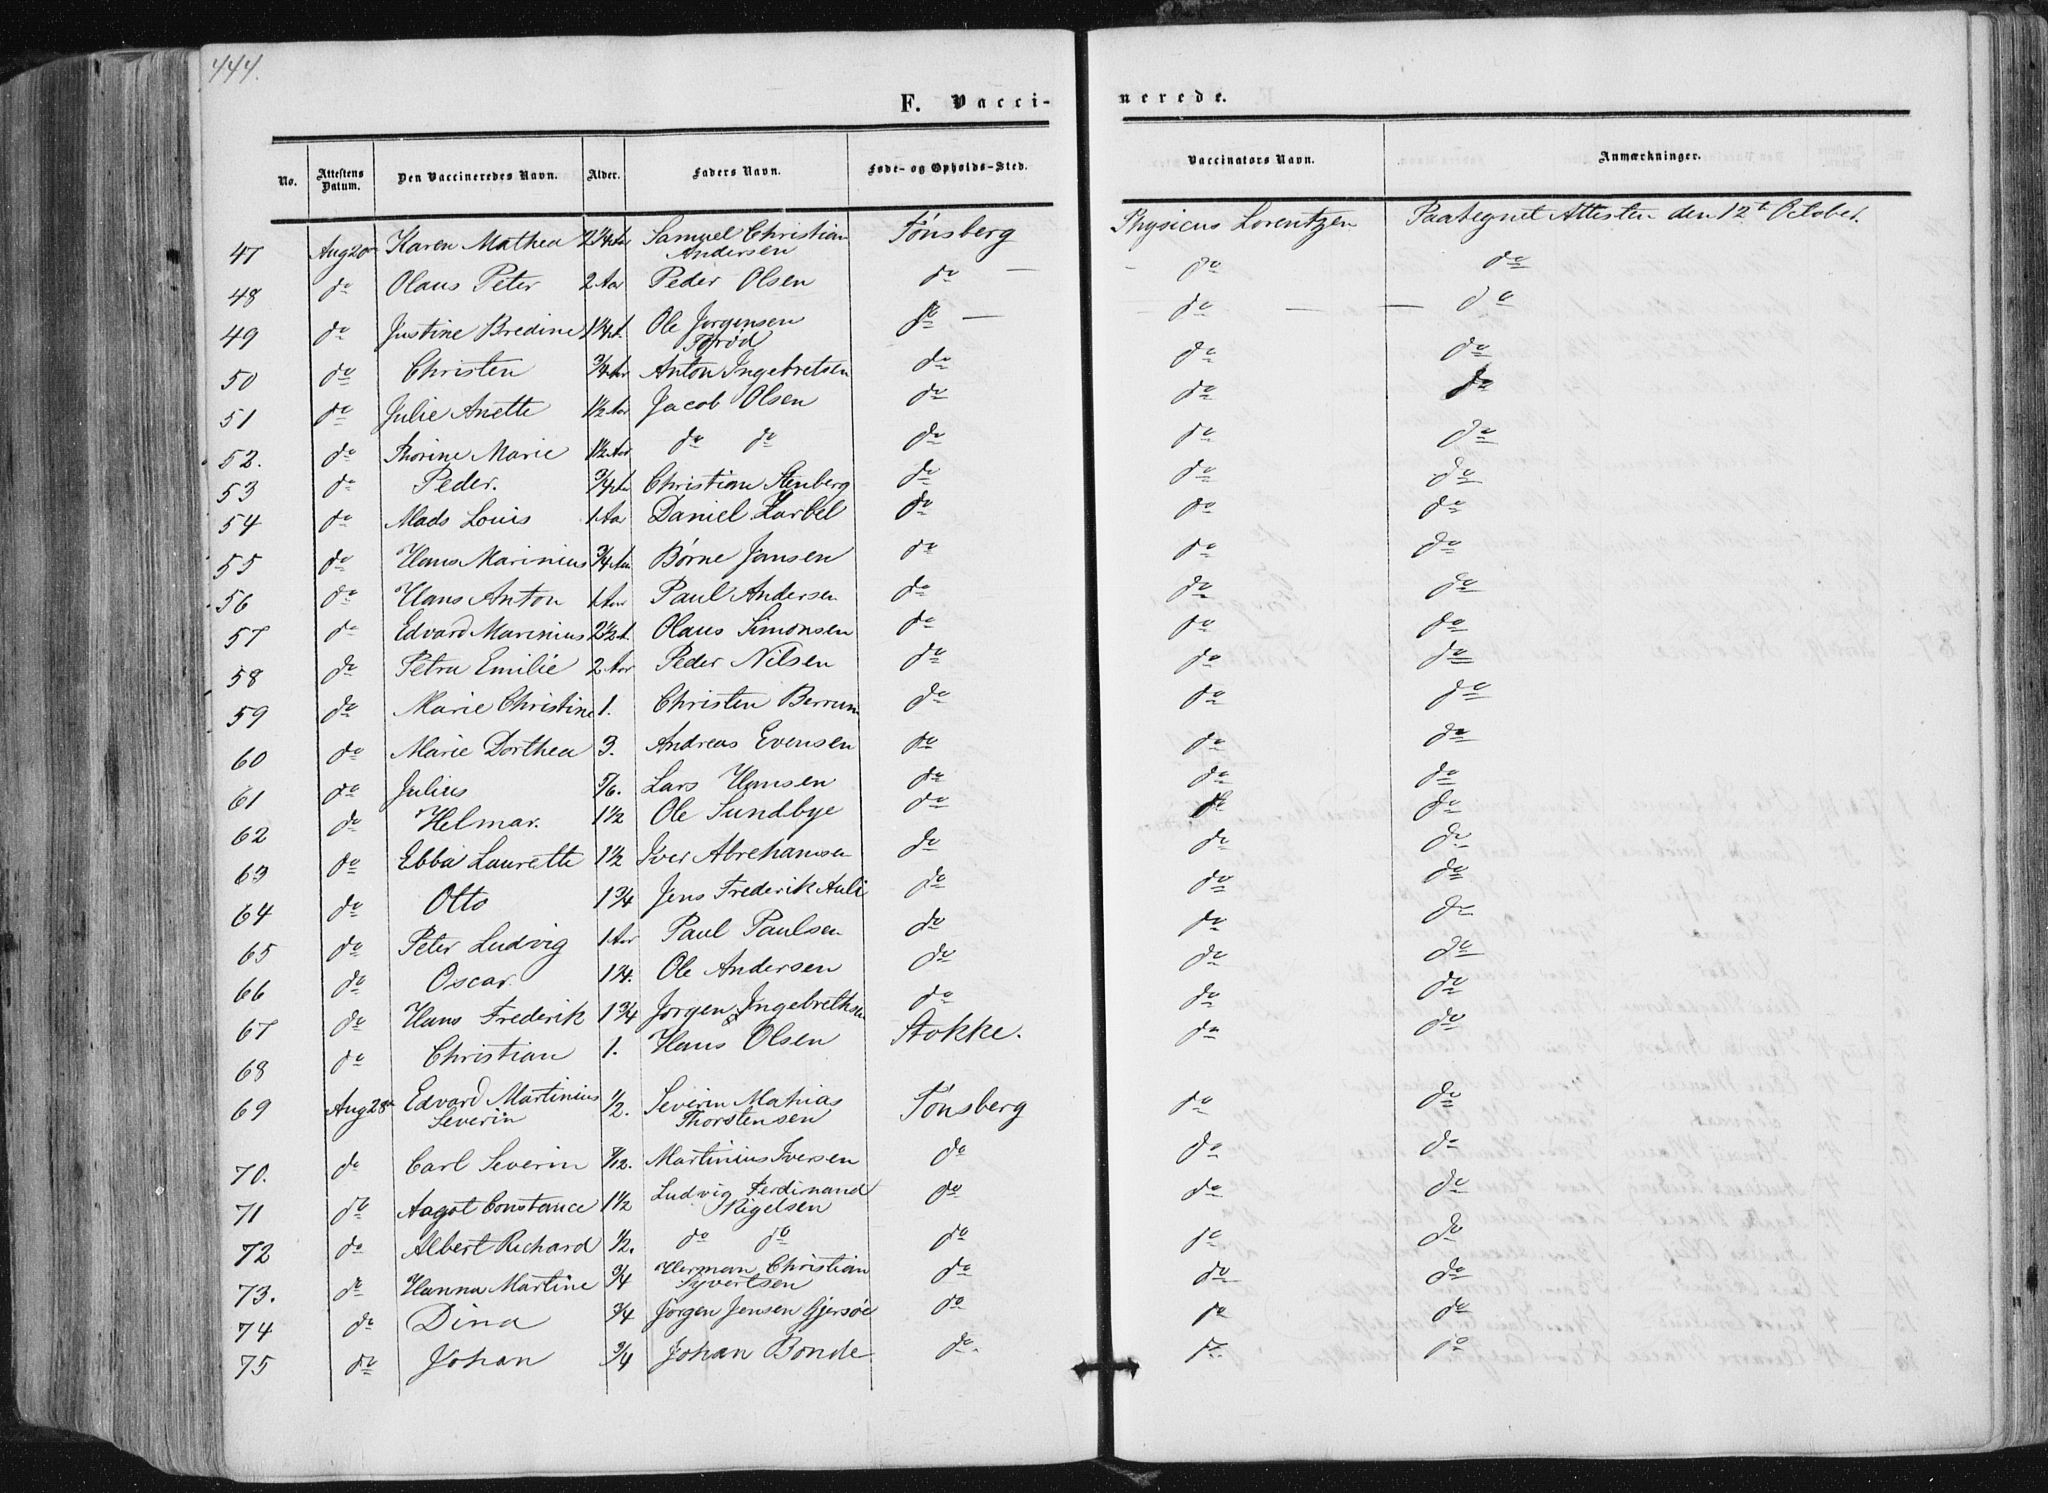 444.
F. Vacci-
nerede.
No. Attestens Datum. Den Vaccineredes Navn. Alder. Faders Navn. Føde- og Opholds-Sted. Vaccinators Navn. Anmærkninger.
47 Aug 20 Karen Mathea 2¼ Aar Samuel Christian Andersen Tønsberg Physicus Lorentzen Paategnet Attesten den 12te October.
48 do Olaus Peter 2 Aar Peder Olsen do — do do
49 do Justine Bredine 1¼ A. Ole Jørgensen do — do — do
50 do Christen ¾ Aar Anton Ingebretsen do do do
51 do Julie Anette 1½ Aar Jacob Olsen do do do
52. do Thorine Marie 1½ Aar do do do do do
53 do Peder. ¾ Christian Stenberg do do do
54 do Mads Louis 1 Aar Daniel do do do
55 do Hans Marinius ¾ Aar Børne Jansen do do do
56 do Hans Anton 1 Aar Paul Andersen do do do
57 do Edvard Marinius 2½ A. Olaus Simonsen do do do
58 do Petra Emilie 2 Aar Peder Nilsen do do do
59 do Marie Christine 1. Christen Berrum do do do
60 do Marie Dorthea 3. Andreas Evensen do do do
61 do Julius 5/6. Lars Hansen do do do
62 do Helmar. 1½ Ole Sundbye do do do
63 do Ebba Laurette 1½ Iver Abrehamsen do do do
64 do Otto 1¾ Jens Frederik Auli do do do
65 do Peter Ludvig 1 Aar Paul Paulsen do do do
66 do Oscar. 1¼. Ole Andersen do do do
67 do Hans Frederik 1¾ Jørgen Ingebrethsen do do do
68 do Christian 1. Hans Olsen Stokke. do do
69 Aug 28 Edvard Martinius Severin ½. Severin Mathias Thorstensen Tønsberg do do
70. do Carl Severin 7/12. Martinius Iversen do do do
71 do Aagot Constance 1½ Ludvig Ferdinand do do do
72 do Albert Richard ½. do do do do do
73. do Hanna Martine ¾ Herman Christian Syvertsen do do do
74 do Dina ¾ Jørgen Jensen Gjersøe do do do
75 do Johan ¾ Johan Bonde do. do. do